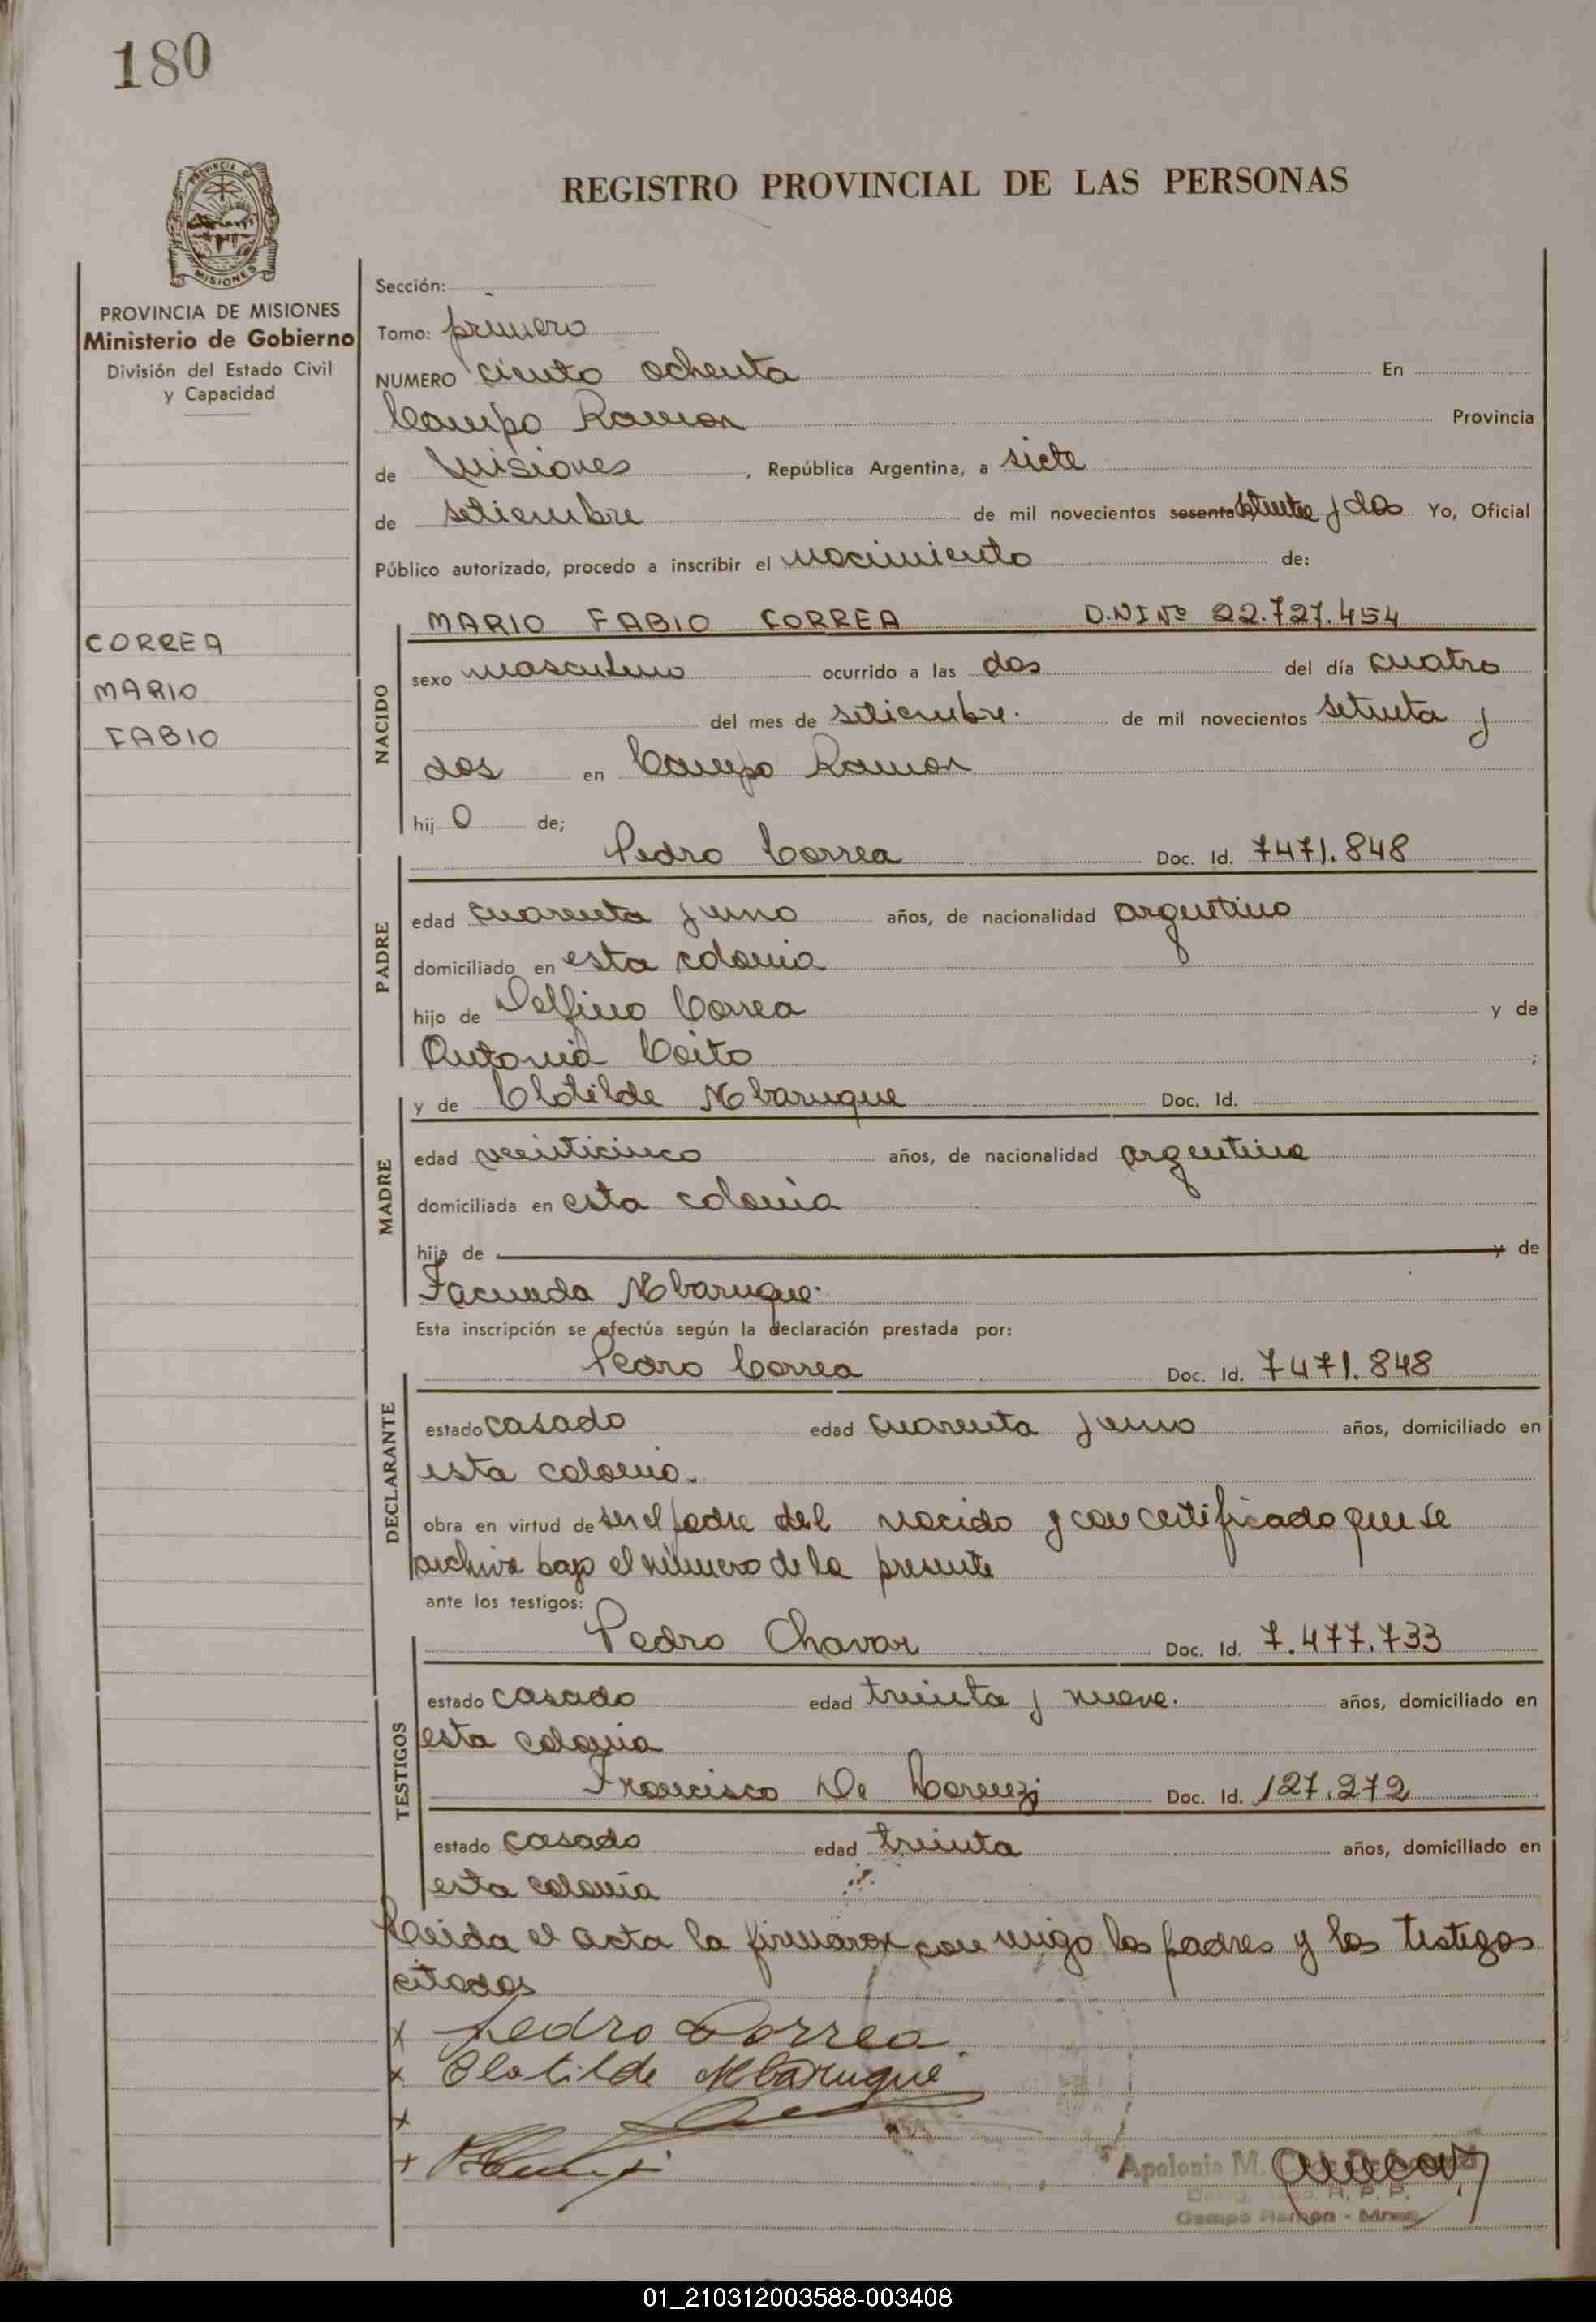 180
REGISTRO PROVINCIAL DE LAS PERSONAS
PROVINCIA DE MISIONES
Ministerio de Gobierno
División del Estado Civil
y Capacidad
CORREA
MARIO
FABIO
Sección:
Tomo: primero
NUMERO ciento ochenta En
Campo Ramon Provincia
de Misiones, República Argentina, a siete
de setiembre de mil novecientos sesenta setenta y dos Yo, Oficial
Público autorizado, procedo a inscribir el nacimiento de:
MARIO FABIO CORREA D.N.I Nº 22.727.454
NACIDO
sexo masculino ocurrido a las dos del día cuatro
del mes de setiembre. de mil novecientos setenta y
dos en Campo Ramon
hijo de;
Pedro Correa Doc. Id. 7471.848
PADRE
edad cuarenta y uno años, de nacionalidad argentino
domiciliado en esta colonia
hijo de Delfino Correa y de
Antonia Coito ;
y de Clotilde Mbarugue Doc. Id.
MADRE
edad veinticinco años, de nacionalidad argentina
domiciliada en esta colonia
hija de y de
Facunda Mbarugue.
Esta inscripción se efectúa según la declaración prestada por:
Pedro Correa Doc. Id. 7471.848
DECLARANTE
estado casado edad cuarenta y uno años, domiciliado en
esta colonia.
obra en virtud de ser el padre del nacido y con certificado que se
archiva bajo el número de la presente
ante los testigos:
Pedro Chavar Doc. Id. 7.477.733
TESTIGOS
estado casado edad treinta y nueve. años, domiciliado en
esta colonia
Francisco De Doc. Id. 127.272
estado casado edad treinta años, domiciliado en
esta colonia
Leida el acta la firmaron con migo los padres y los testigos
citados
x Pedro Correa.
x Clotilde Mbarugue
x
+
Apolonia M.
R. P. P.
Campo Ramón - Mnes
01_210312003588-003408